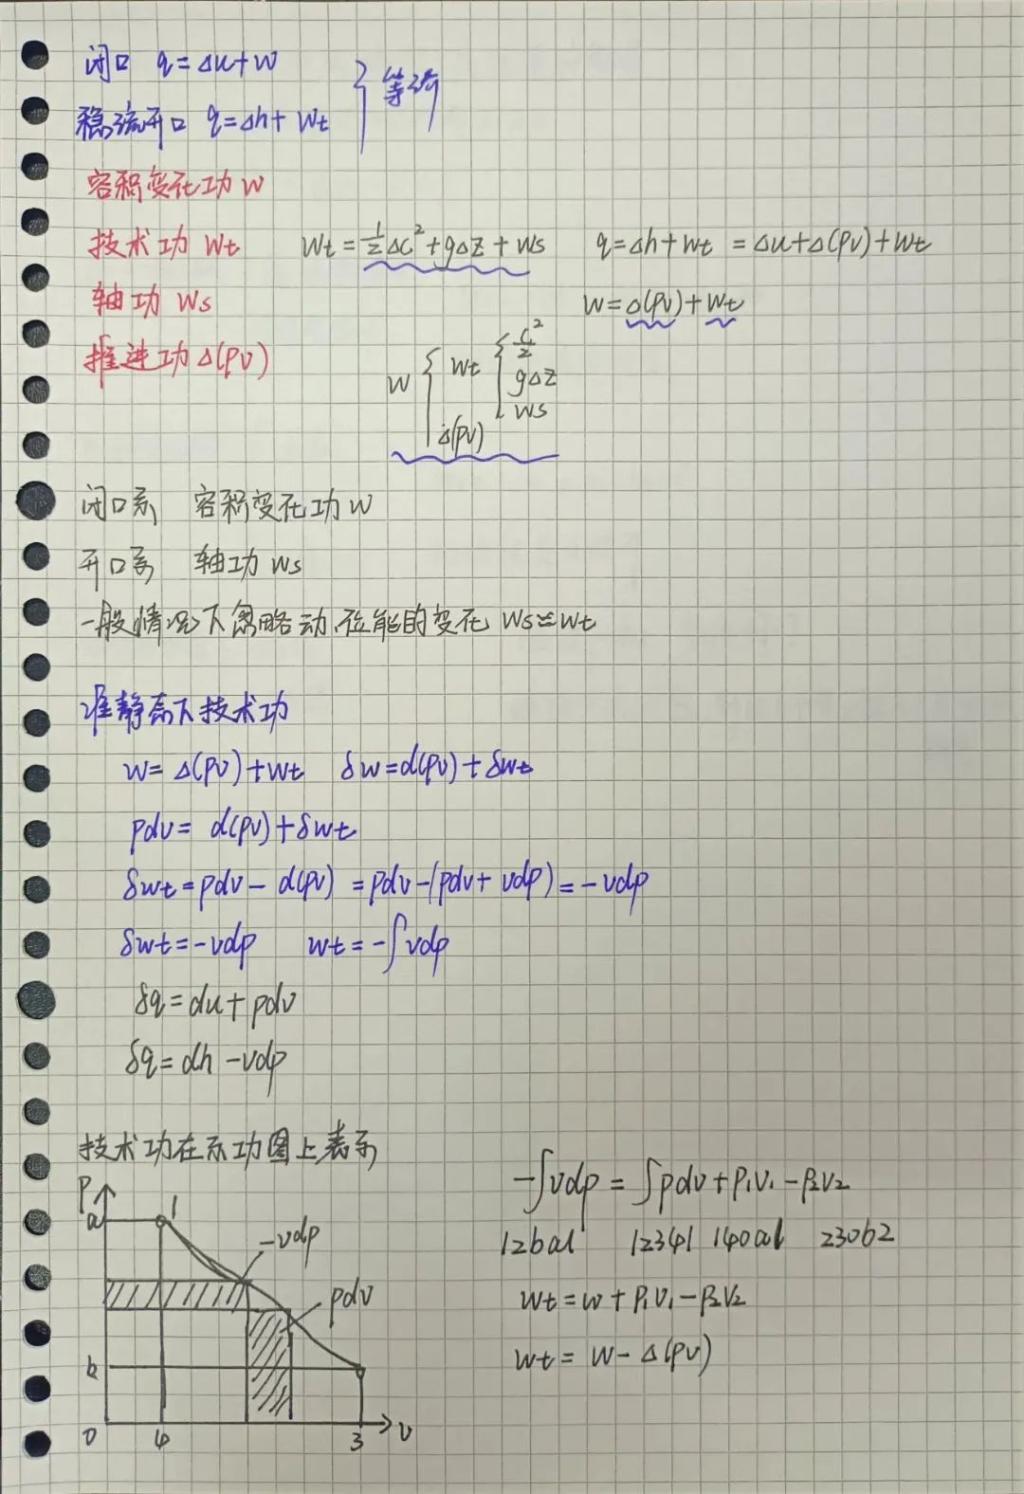 闭口 q=Δu+w
稳流开口 q=Δh+wt } 等价
容积变化功 w
技术功 wt wt=½Δc²+gΔz+ws q=Δh+wt=Δu+Δ(pv)+wt
轴功 ws w=Δ(pv)+wt
推进功 Δ(pv)
w { wt { c²/2
gΔz
ws
Δ(pv)
闭口系 容积变化功 w
开口系 轴功 ws
一般情况下忽略动、位能的变化 ws≈wt
准静态下技术功
w=Δ(pv)+wt δw=d(pv)+δwt
pdv=d(pv)+δwt
δwt=pdv-d(pv)=pdv-(pdv+vdp)=-vdp
δwt=-vdp wt=-∫vdp
δq=du+pdv
δq=dh-vdp
技术功在示功图上表示
P
a 1
-vdp
pdv
b
0 4 3 v
-∫vdp=∫pdv+p₁v₁-p₂v₂
12ba1 12341 140a1 230b2
wt=w+p₁v₁-p₂v₂
wt=w-Δ(pv)